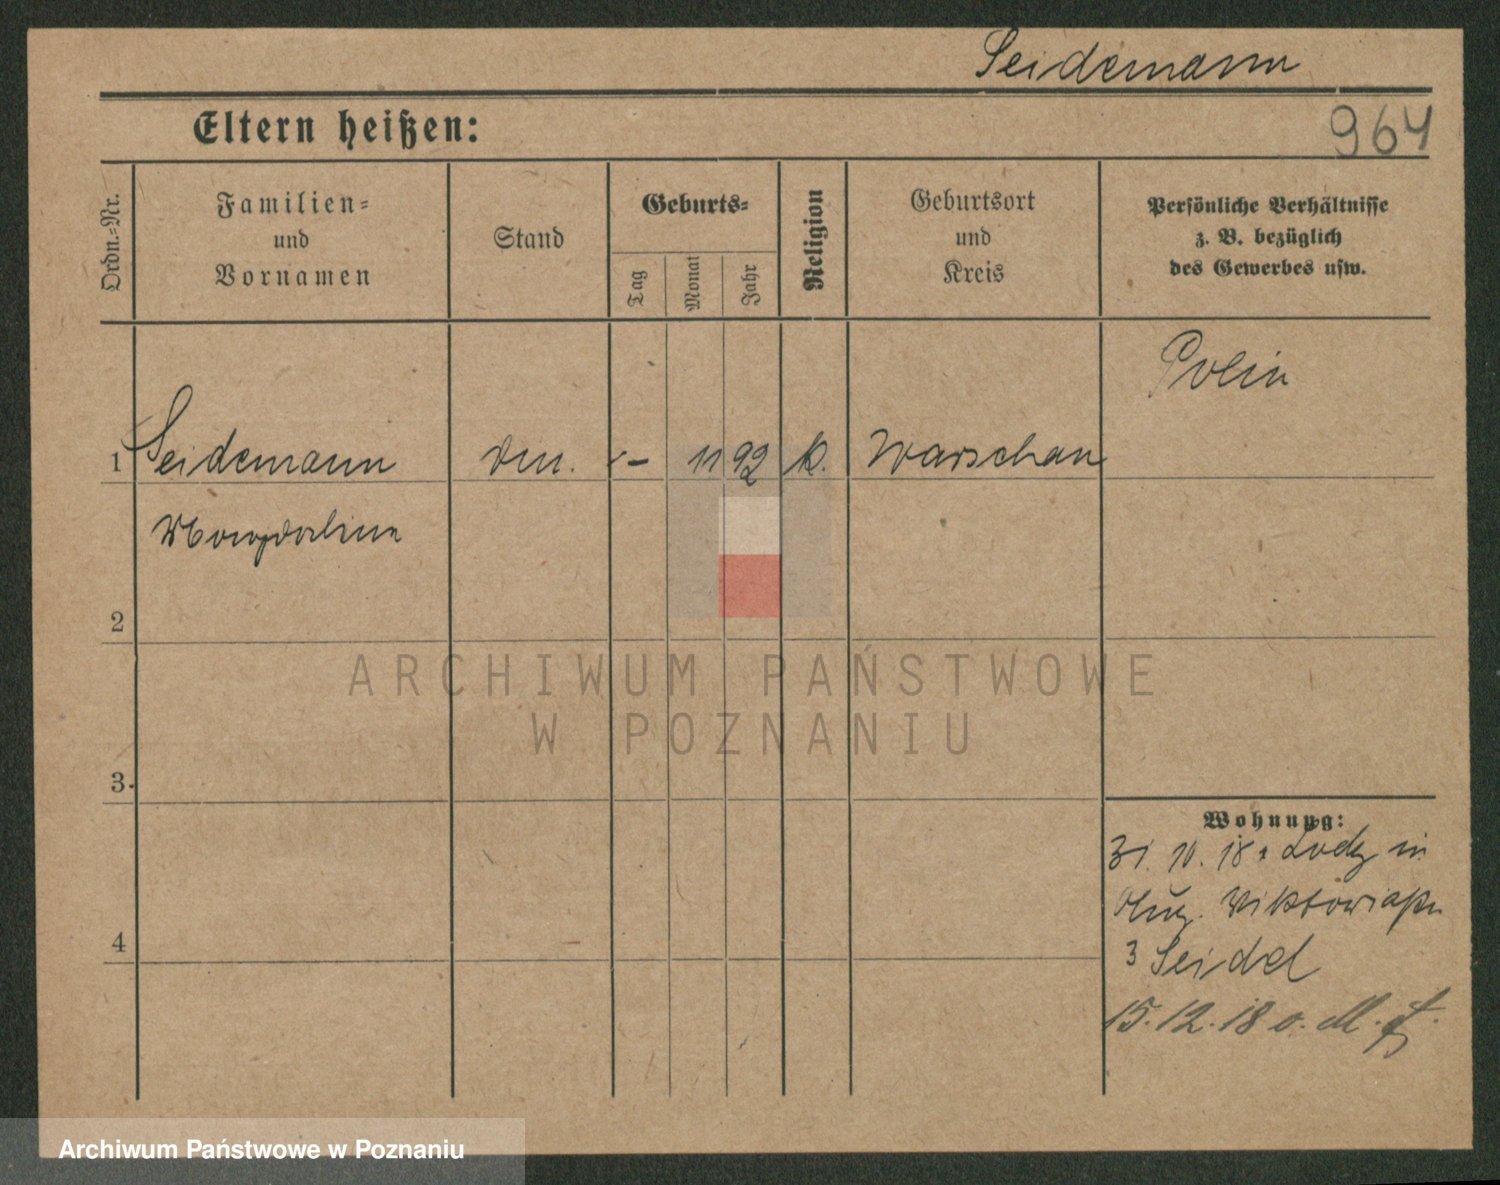 Seidemann
964
Eltern heißen:
Ordn.=Nr.
Familien=
und
Vornamen
Stand
Geburts=
Tag
Monat
Jahr
Religion
Geburtsort
und
Kreis
Persönliche Verhältnisse
z. B. bezüglich
des Gewerbes usw.
Polin
1 Seidemann – 11 92 k. Warschau
Magdalena
2
3.
4
ARCHIWUM PAŃSTWOWE
W POZNANIU
Wohnung:
31. 10. 18 Lodz in
Viktoriastr
3 Seidel
15. 12. 18 o. M. f.
Archiwum Państwowe w Poznaniu